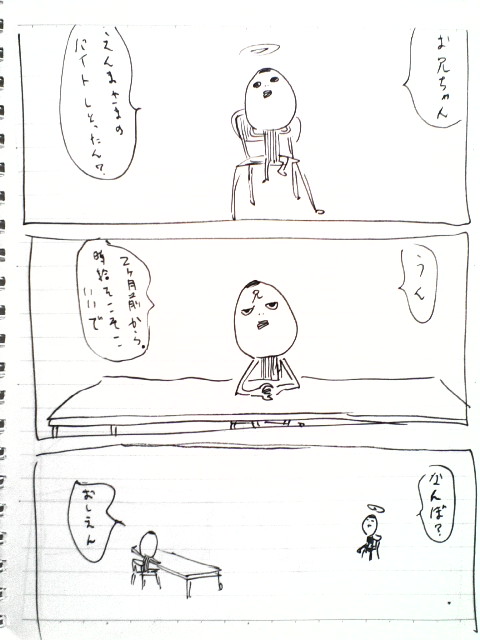 お兄ちゃん
えんまさまの
バイトしとったん?
うん
兄
2ヶ月前から。
時給そこそこ
いいで
なんぼ?
おしえん